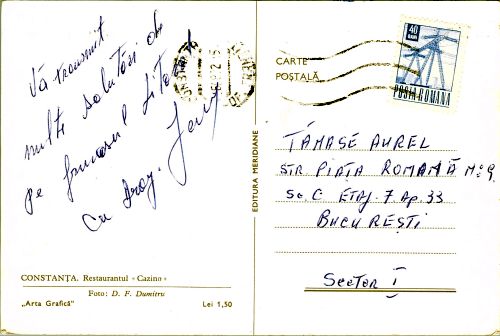 Vă transmit
multe salutări de
pe frumosul litoral
Cu drag,
CONSTANŢA. Restaurantul «Cazino»
Foto: D. F. Dumitru
„Arta Grafică"
Lei 1,50
EDITURA MERIDIANE
CARTE
POŞTALĂ
40
BANI
POSTA ROMANA
TĂNASE AUREL
STR. PIAŢA ROMANĂ No 9
Sc. C ETAJ. 7 Ap. 33
BUCUREŞTI
Sector I